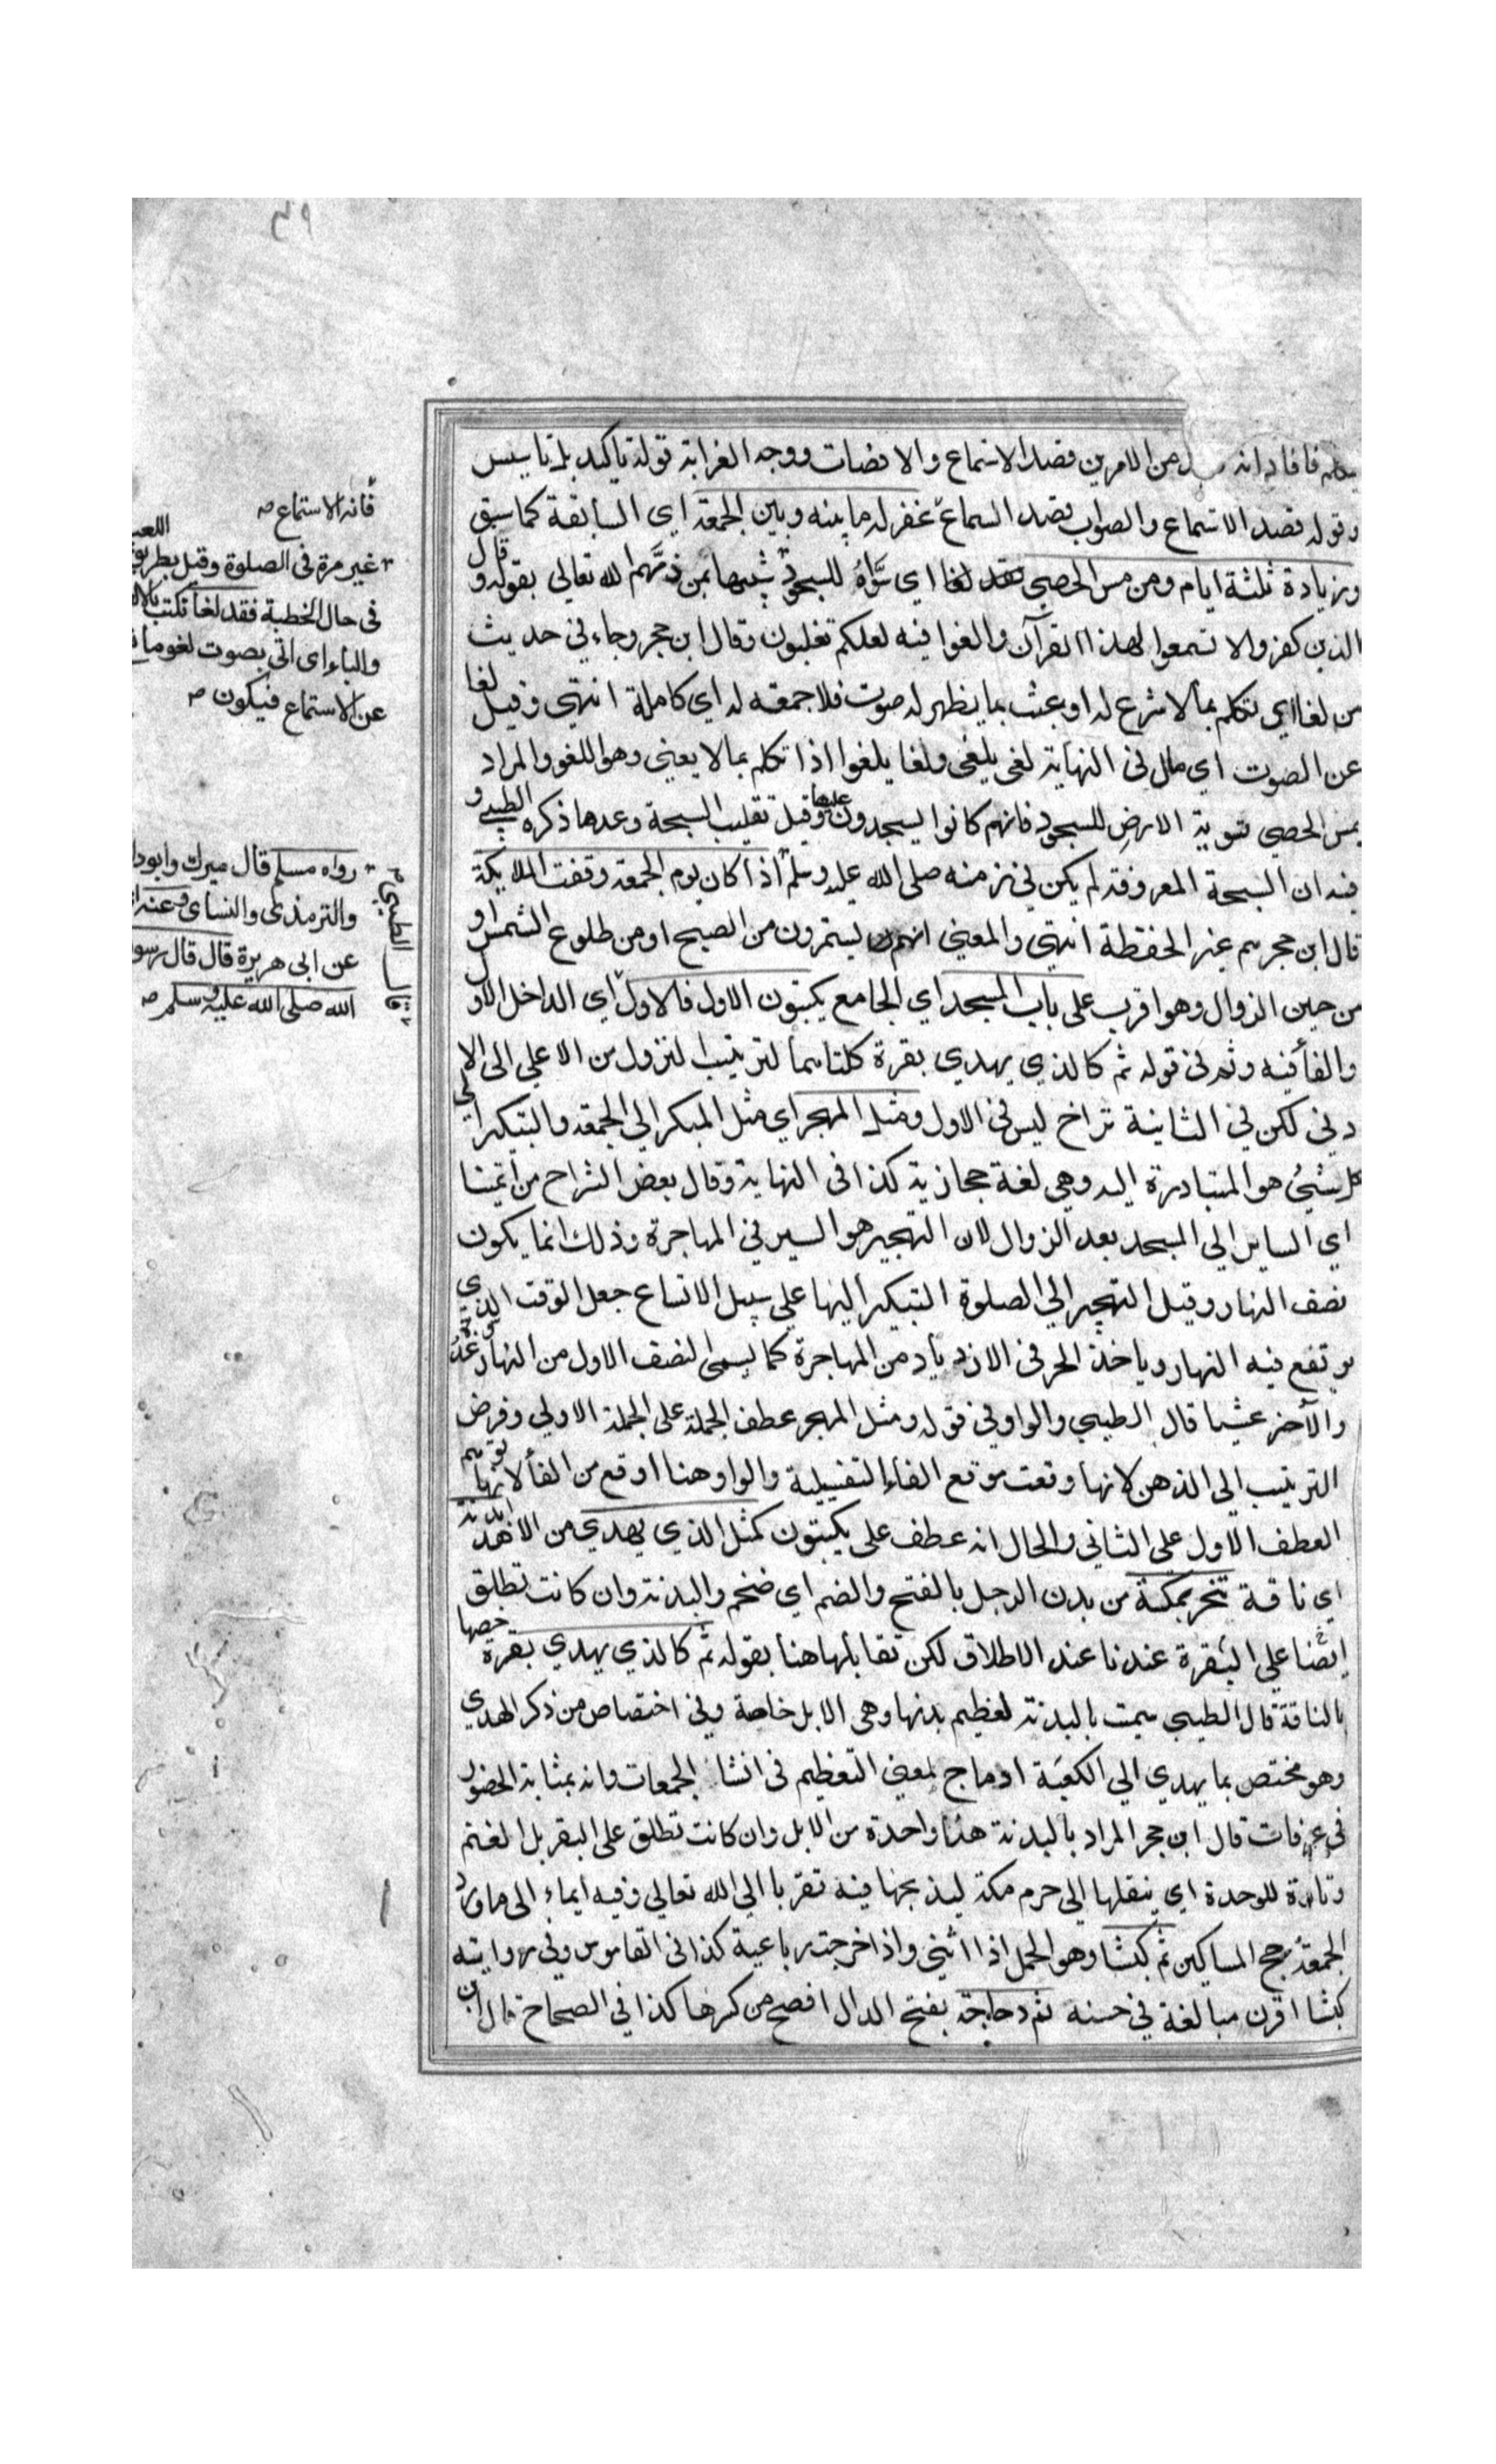 ٣٩
فافاد انه من الامرين قصد الاستماع والانصات ووجه الغرابة قوله تاكيد بل تاسيس
وقوله قصد الاستماع والصواب قصد السماع غفر له ما بينه وبين الجمعة اي السابقة كما سبق
وزيادة ثلثة ايام ومن مس الحصى فقد لغا اي سَوَّاهُ للسجود شبها بمن ذمَّهم الله تعالي بقوله وقال
الذين كفروا لا تسمعوا لهذا القرآن والغوا فيه لعلكم تغلبون وقال ابن حجر وجاء في حديث
من لغا اي تكلم بما لا شرع له او عبث بما يظهر له صوت فلا جمعة له اي كاملة انتهي وقيل لغا
عن الصوت اي مال في النهاية لغي يلغي ولغا يلغوا اذا تكلم بما لا يعني وهو اللغو والمراد
بمس الحصي تسوية الارض للسجود فانهم كانوا يسجدون عليها وقيل تقليب السبحة وعدها ذكره الطيبي و
فيه ان السبحة المعروفة لم يكن في زمنه صلى الله عليه وسلم اذا كان يوم الجمعة وقفت الملايكة
قال ابن حجر هم غير الحفظة انتهي والمعني انهم يستمرون من الصبح او من طلوع الشمس او
من حين الزوال وهو اقرب على باب المسجد اي الجامع يكتبون الاول فالاول اي الداخل الاول
والفأ فيه وثم في قوله ثم كالذي يهدي بقرة كلتاهما لترتيب النزول من الاعلي الى الا
دني لكن في الثانية تراخ ليس في الاول ومثل المهجر اي مثل المبكر الي الجمعة والتبكير الي
كل شيئ هو المتبادرة اليه وهي لغة حجازية كذا في النهاية وقال بعض الشراح من أئمتنا
اي الساير الي المسجد بعد الزوال لان التهجير هو السير في المهاجرة وذلك انما يكون
نصف النهار وقيل التهجير الي الصلوة التبكير اليها علي سبيل الاتساع جعل الوقت الذي
يرتفع فيه النهار وياخذ الحر في الازدياد من المهاجرة كما يسمى النصف الاول من النهار غدوة
والآخر عشيا قال الطيبي والواو في قوله ومثل المهجر عطف الجملة على الجملة الاولي وفرض
الترتيب الي الذهن لانها وقعت موقع الفاء التفصيلية والواو هنا اوقع من الفأ لانها توهم
العطف الاول على الثاني والحال انه عطف على يكتبون كمثل الذي يهدي من الاهد بدنة
اي ناقة تنحر بمكة من بدن الرجل بالفتح والضم اي ضخم والبدنة وان كانت تطلق
ايضا علي البقرة عندنا عند الاطلاق لكن تقابلها هنا بقوله ثم كالذي يهدي بقرة خصها
بالناقة قال الطيبي سميت بالبدنة لعظيم بدنها وهي الابل خاصة وفي اختصاص من ذكر الهدي
وهو مختص بما يهدي الي الكعبة ادماج لمعني التعظيم في انشاء الجمعات وانه بمثابة الحضور
في عرفات قال ابن حجر المراد بالبدنة هنا واحدة من الابل وان كانت تطلق على البقر بل الغنم
وتاءه للوحدة اي ينقلها الى حرم مكة ليذبحها فيه تقربا الي الله تعالي وفيه ايماء الى ما ورد
الجمعة حج المساكين ثم كبشا وهو الحمل اذا اثني واذا خرجت رباعية كذا في القاموس وفي رواية
كبشا اقرن مبالغة في حسنه ثم دجاجة بفتح الدال افصح من كسرها كذا في الصحاح قال ابن
فانه الاستماع صح
غير مرة في الصلوة وقبل بطريق
اللعب
في حال الخطبة فقد لغا
والباء اي اتى بصوت لغو
عن الاستماع فيكون صح
رواه مسلم قال ميرك وابودا
والترمذى والنساى وعنه
عن ابى هريرة قال قال رسو
الله صلى الله عليه وسلم صح
قال الطيبي